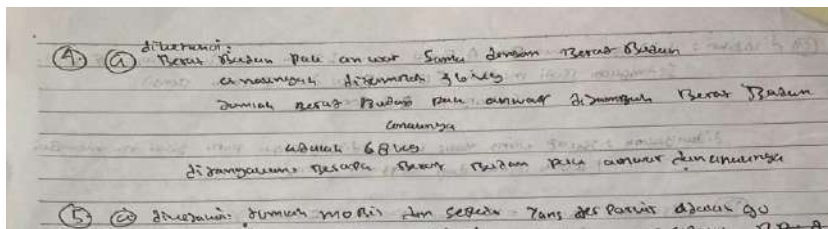 4. a diketahui:
Berat Badan pak anwar Sama dengan Berat Badan
anaknya ditambah 36 kg
Jumlah Berat Badan pak anwar ditambah Berat Badan
anaknya
adalah 68 kg
ditanyakan: Berapa Berat Badan pak anwar dan anaknya
5. a diketahui: Jumlah mobil dan sepeda yang ter Parkir adalah 90